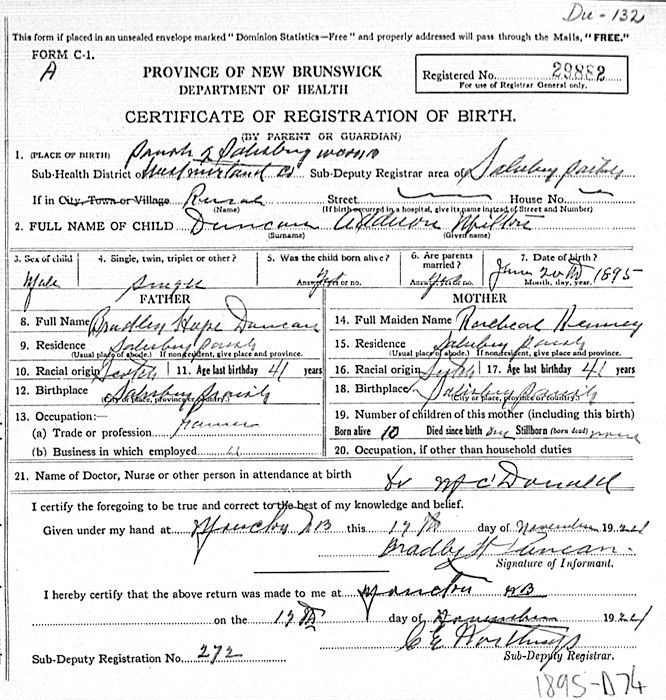 Du-132
This form if placed in an unsealed envelope marked "Dominion Statistics—Free" and properly addressed will pass through the Mails, "FREE."
FORM C-1.
A
PROVINCE OF NEW BRUNSWICK
DEPARTMENT OF HEALTH
Registered No. 29882
For use of Registrar General only.
CERTIFICATE OF REGISTRATION OF BIRTH.
(BY PARENT OR GUARDIAN)
1. (PLACE OF BIRTH) Parish of Salisbury
Sub-Health District of Westmorland Co Sub-Deputy Registrar area of Salisbury Parish
If in City, Town or Village Rural Street House No.
(Name) (If birth occurred in a hospital, give its name instead of Street and Number)
2. FULL NAME OF CHILD Duncan Addison Milton
(Surname) (Given name)
3. Sex of child 4. Single, twin, triplet or other? 5. Was the child born alive? 6. Are parents married? 7. Date of birth?
Male Single Answer yes or no. Yes Answer yes or no. Yes June 20th 1895
Month, day, year.
FATHER MOTHER
8. Full Name Bradley Hope Duncan 14. Full Maiden Name
9. Residence Salisbury Parish 15. Residence Salisbury Parish
(Usual place of abode.) If nonresident, give place and province. (Usual place of abode.) If nonresident, give place and province.
10. Racial origin Scotch 11. Age last birthday 41 years 16. Racial origin 17. Age last birthday 41 years
12. Birthplace Salisbury Parish 18. Birthplace Salisbury Parish
(City or place, province or country.) (City or place, province or country.)
13. Occupation:— 19. Number of children of this mother (including this birth)
(a) Trade or profession Farmer Born alive 10 Died since birth one Stillborn (born dead) none
(b) Business in which employed " 20. Occupation, if other than household duties
21. Name of Doctor, Nurse or other person in attendance at birth Dr McDonald
I certify the foregoing to be true and correct to the best of my knowledge and belief.
Given under my hand at Moncton N B this 17th day of November 192
Bradley H Duncan.
Signature of Informant.
I hereby certify that the above return was made to me at Moncton NB
on the 17th day of November 192
C E Northrup
Sub-Deputy Registrar.
Sub-Deputy Registration No. 272
1895-D74